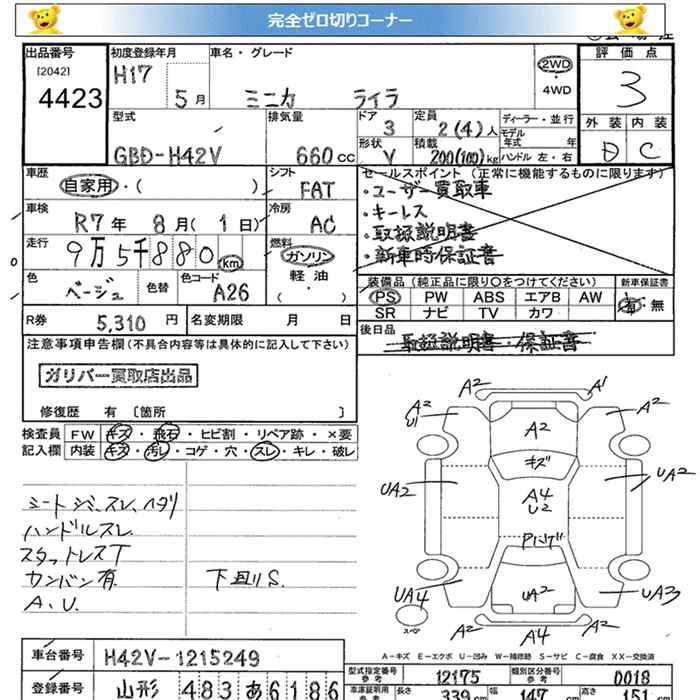 完全ゼロ切りコーナー
出品番号 初度登録年月 車名・グレード 評価点
[2042] H17 2WD 3
4423 5月 ミニカ ライラ 4WD
型式 排気量 ドア 定員 ディーラー・並行 外装 内装
3 2(4)人 モデル年式 年
GBD-H42V 660cc 形状 積載 D C
V 200(100)kg ハンドル 左・右
車歴 シフト セールスポイント(正常に機能するものに限ります)
自家用・( ) FAT ・ユーザー買取車
車検 冷房 ・キーレス
R7年 8月(1日) AC ・取扱説明書
走行 燃料 ・新車時保証書
9万5千880km ガソリン
色 色替 色コード 軽油 装備品(純正品に限り○をつけてください) 新車保証書
ベージュ A26 ( ) PS PW ABS エアB AW 有・無
SR ナビ TV カワ
R券 5,310円 名変期限 月 日 後日品
注意事項申告欄(不具合内容等は具体的に記入して下さい) 取扱説明書・保証書
ガリバー買取店出品
修復歴 有〔箇所 〕
検査員 FW キズ・飛石・ヒビ割・リペア跡・×要
記入欄 内装 キズ・汚レ・コゲ・穴・スレ・キレ・破レ
A2 A1
A2 U1 A2 A2
キズ
UA2 A4 U2 UA2
シートシミ、スレ、ヘタリ
ハンドルスレ
スタットレスT
カンバン有 下廻りS.
A.U.
UA4 UA2 UA3
スペア A2 A4 A2
A-キズ E-エクボ U-凹み W-補修跡 S-サビ C-腐食 XX-交換済
車台番号 H42V-1215249
型式指定番号 参考 12175 類別区分番号 参考 0018
登録番号 山形 483 あ 6186
車庫証明用 参考 長さ 339cm 幅 147cm 高さ 151cm